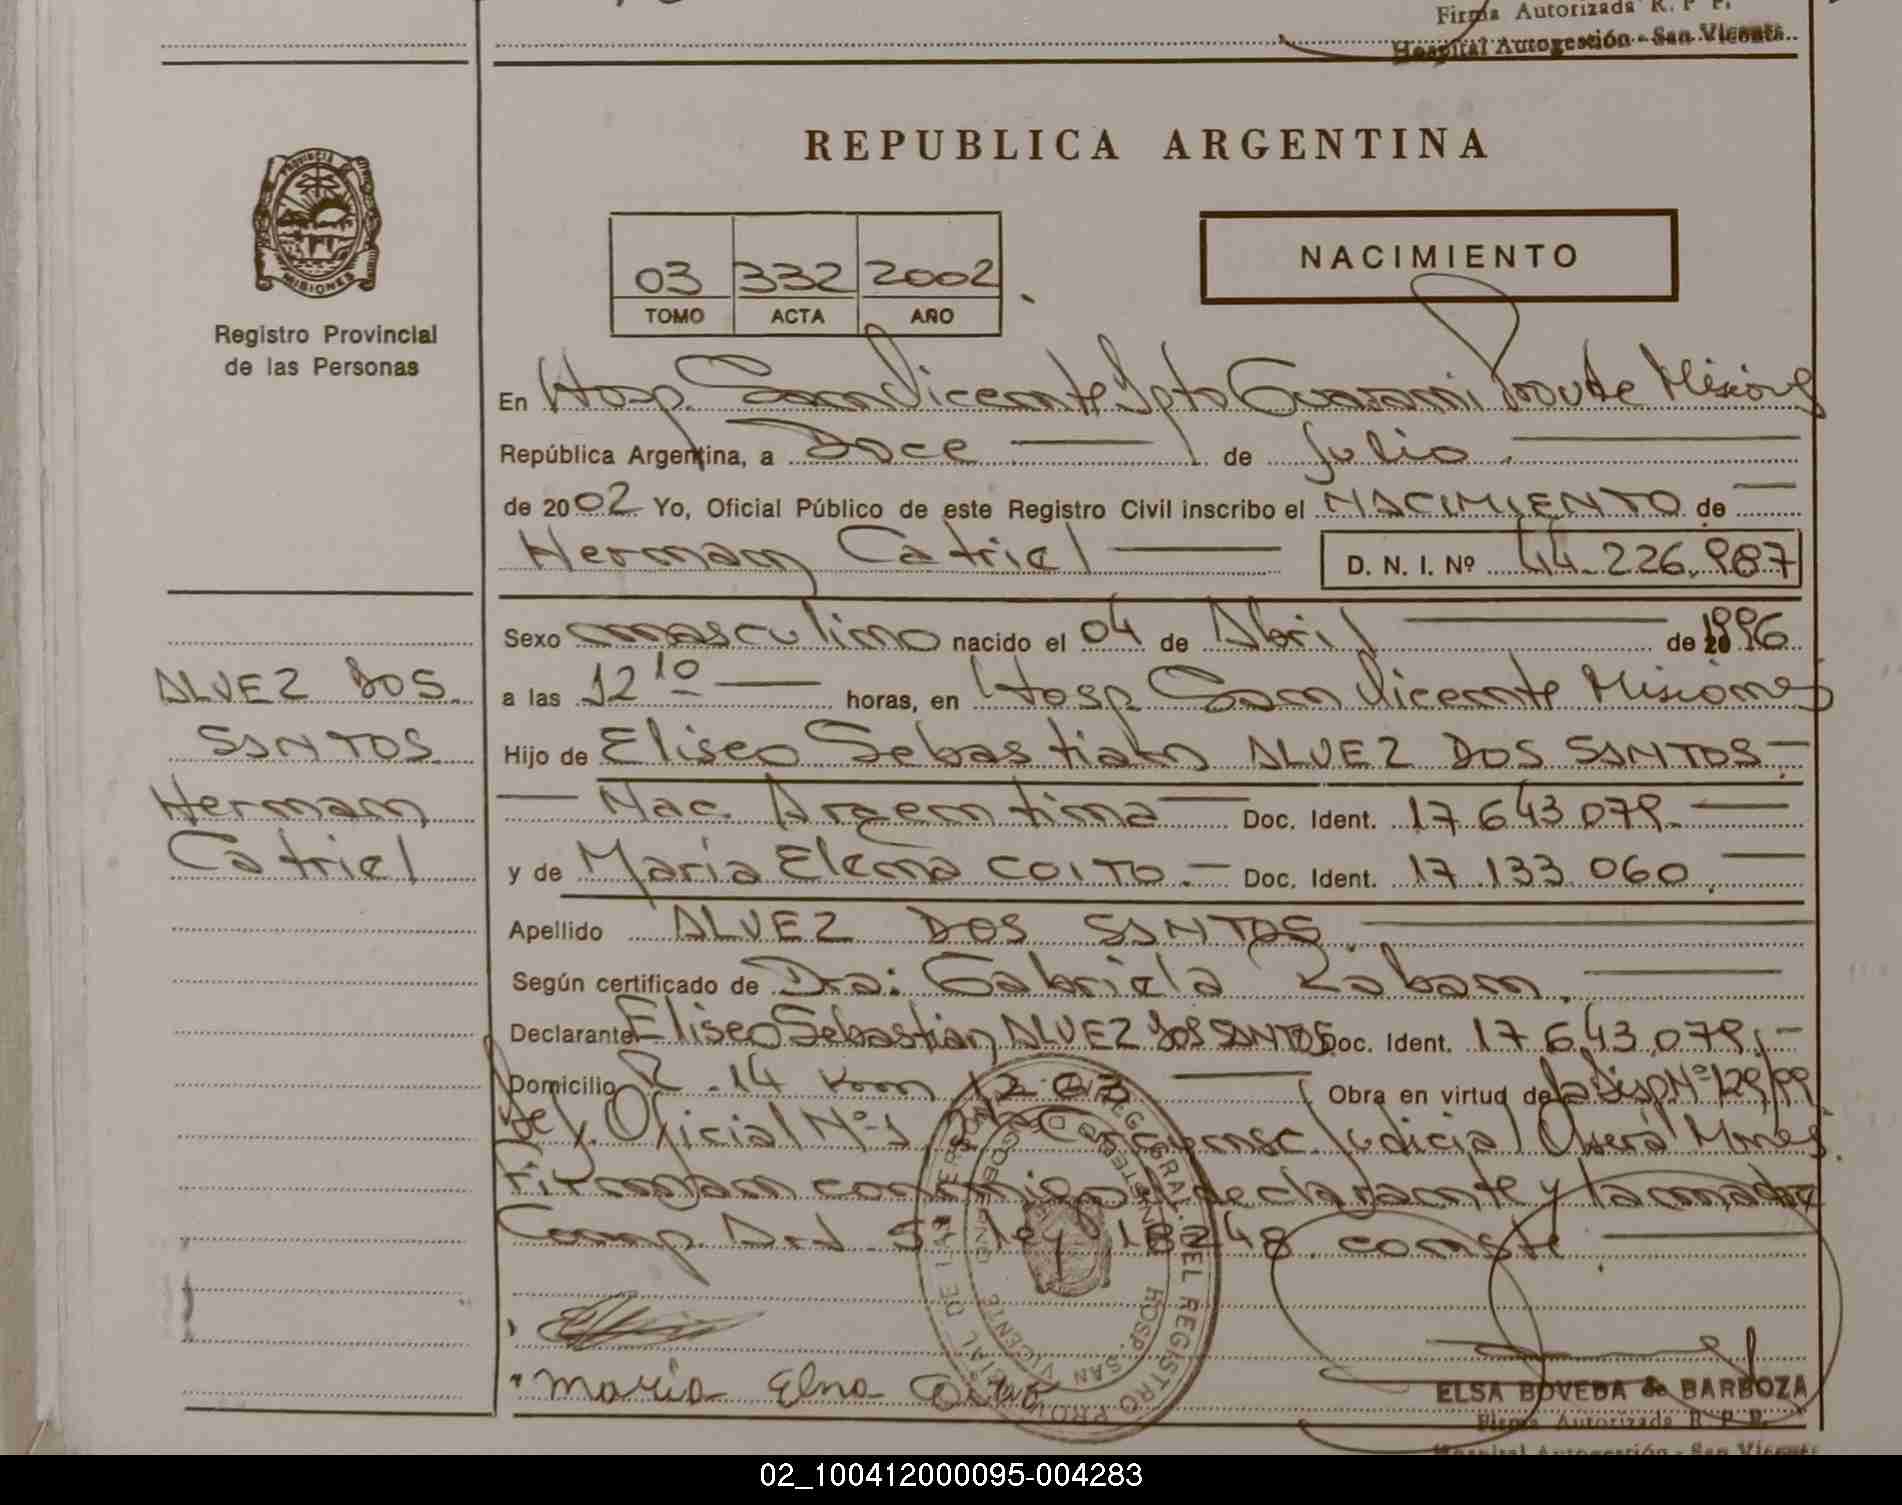 Firma Autorizada R. P P.
Hospital Autogestión - San Vicente
REPUBLICA ARGENTINA
PROVINCIA
MISIONES
Registro Provincial
de las Personas
03 332 2002
TOMO ACTA AÑO
NACIMIENTO
En Hosp. San Vicente Dpto Guarani Prov de Misiones
República Argentina, a Doce de Julio.
de 2002 Yo, Oficial Público de este Registro Civil inscribo el NACIMIENTO de
Hernan Catriel D. N. I. Nº 44.226.987
Sexo masculino nacido el 04 de Abril de 1996
a las 12 10 horas, en Hosp San Vicente Misiones
Hijo de Eliseo Sebastian ALVEZ DOS SANTOS
Nac. Argentina Doc. Ident. 17 643 079.
y de María Elena COITO. Doc. Ident. 17.133 060.
Apellido ALVEZ DOS SANTOS.
Según certificado de Dra: Gabriela Zaban.
Declarante Eliseo Sebastián ALVEZ DOS SANTOS Doc. Ident. 17 643.079.
Domicilio R. 14 Km 1203 Obra en virtud de la Disp Nº 129/99
Oficial Nº 1 Judicial Oberá Mnes.
Firman conmigo declarante y tamadre
Comp. Art 5 ley 18248. conste.
ALVEZ DOS
SANTOS
Hernan
Catriel
REGISTRO PROVINCIAL DE
HOSP. SAN VICENTE
Maria Elna Coito
ELSA BOVEDA de BARBOZA
Firma Autorizada R. P P.
Hospital Autogestión - San Vicente
02_100412000095-004283